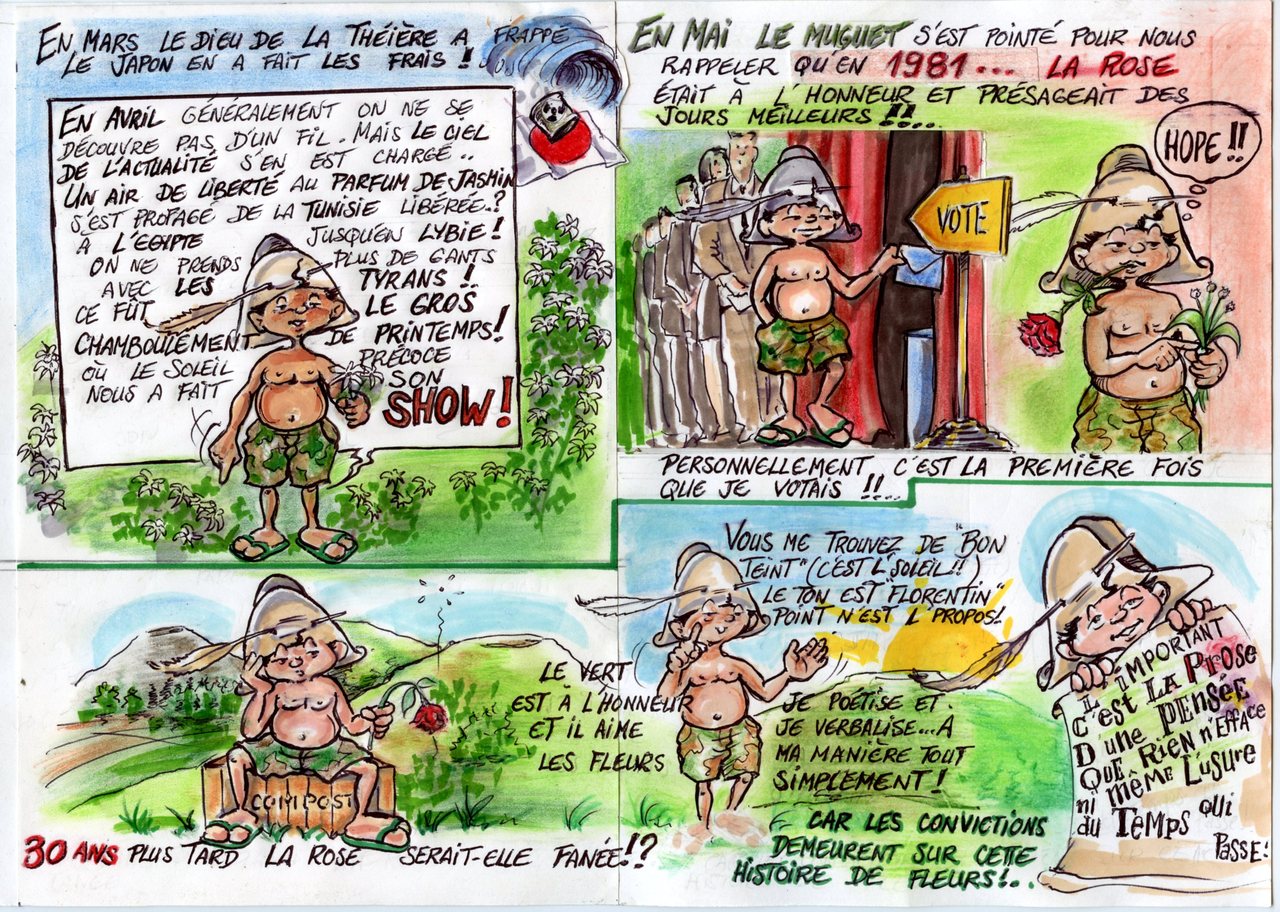 EN MARS LE DIEU DE LA THÉIÈRE A FRAPPÉ
LE JAPON EN A FAIT LES FRAIS !
EN AVRIL GÉNÉRALEMENT ON NE SE
DÉCOUVRE PAS D'UN FIL. MAIS LE CIEL
DE L'ACTUALITÉ S'EN EST CHARGÉ..
UN AIR DE LIBERTÉ AU PARFUM DE JASMIN
S'EST PROPAGÉ DE LA TUNISIE LIBÉRÉE..?
A L'EGYPTE JUSQU'EN LYBIE !
ON NE PRENDS PLUS DE GANTS
AVEC LES TYRANS !
CE FÛT LE GROS
CHAMBOULEMENT DE PRINTEMPS!
PRÉCOCE
OÙ LE SOLEIL SON
NOUS A FAIT SHOW !
EN MAI LE MUGUET S'EST POINTÉ POUR NOUS
RAPPELER QU'EN 1981... LA ROSE
ÉTAIT À L'HONNEUR ET PRÉSAGEAIT DES
JOURS MEILLEURS !!...
HOPE !!
VOTE
PERSONNELLEMENT, C'EST LA PREMIÈRE FOIS
QUE JE VOTAIS !!...
COMPOST
30 ANS PLUS TARD LA ROSE SERAIT-ELLE FANÉE!?
LE VERT
EST À L'HONNEUR
ET IL AIME
LES FLEURS
VOUS ME TROUVEZ DE "BON
TEINT" (C'EST L'SOLEIL!!)
LE TON EST "FLORENTIN"
POINT N'EST L'PROPOS!
JE POÉTISE ET
JE VERBALISE... A
MA MANIÈRE TOUT
SIMPLEMENT !
CAR LES CONVICTIONS
DEMEURENT SUR CETTE
HISTOIRE DE FLEURS!..
L'IMPORTANT
C'est LA PROSE
D'une PENSÉE
QUE RIEN n'EFFACE
ni même L'usure
du TEMPS qui
PASSE!